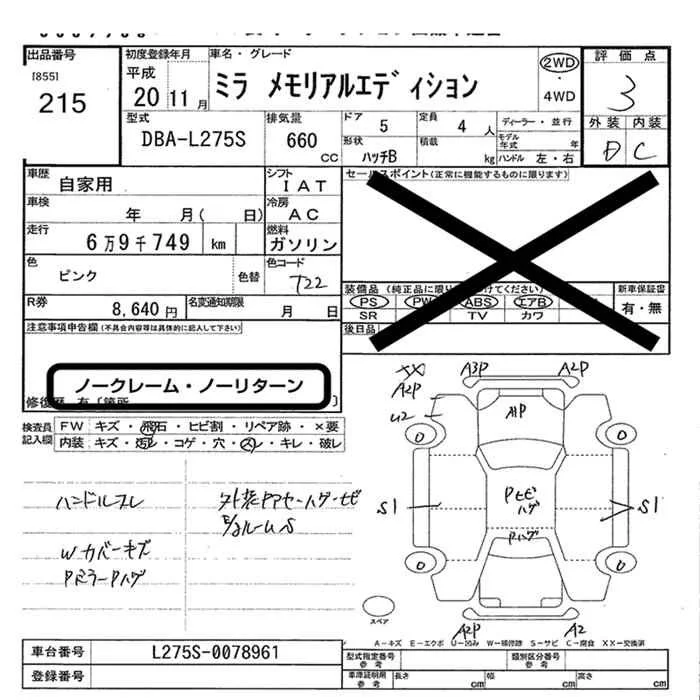 出品番号
[855]
215
初度登録年月
平成
20 11 月
車名・グレード
ミラ メモリアルエディション
2WD
・
4WD
評価点
3
外装 内装
D C
型式
DBA-L275S
排気量
660 CC
ドア 5
定員 4 人
形状 ハッチB
積載 kg
ディーラー・並行
モデル年式 年
ハンドル 左・右
車歴 自家用
シフト IAT
車検 年 月( 日)
冷房 AC
走行 6万9千749 km
燃料 ガソリン
色 ピンク 色替
色コード T22
R券 8,640 円
名変通知期限 月 日
セールスポイント(正常に機能するものに限ります)
装備品
PS PW ABS エアB
SR TV カワ
新車保証書
有・無
後日品
注意事項申告欄(不具合内容等は具体的に記入して下さい)
ノークレーム・ノーリターン
検査員記入欄
FW キズ・飛石・ヒビ割・リペア跡・×要
内装 キズ・汚レ・コゲ・穴・スレ・キレ・破レ
ハンドルスレ
Wカバーキズ
PミラーPハゲ
XX
A2P
U2
A3P
A2P
A1P
Pヒビ
ハゲ
Pハゲ
S1
S1
0
0
0
0
A2P
A2
スペア
A-キズ E-エクボ U-凹み W-補修跡 S-サビ C-腐食 XX-交換済
車台番号 L275S-0078961
登録番号
型式指定番号 参考
類別区分番号 参考
車庫証明用 参考
長さ cm
幅 cm
高さ cm